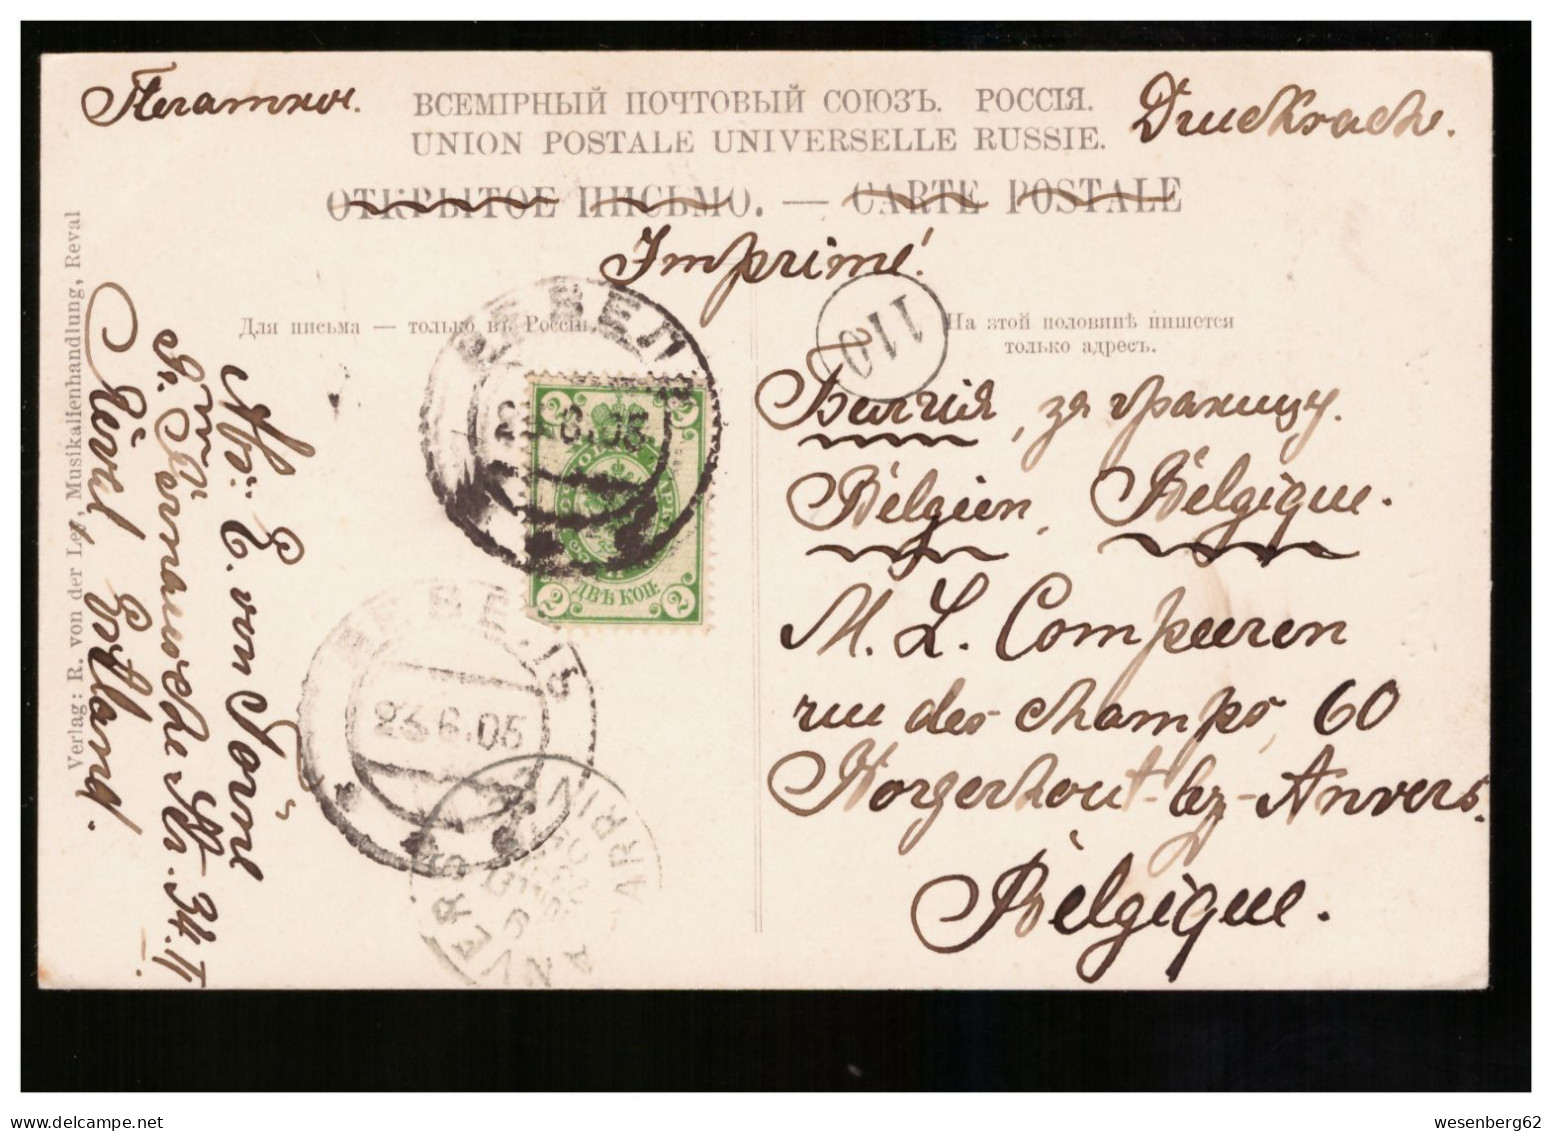 Печатное.
ВСЕМІРНЫЙ ПОЧТОВЫЙ СОЮЗЪ. РОССІЯ.
Drucksache.
UNION POSTALE UNIVERSELLE RUSSIE.
ОТКРЫТОЕ ПИСЬМО. — CARTE POSTALE
Imprimé.
Для письма — только въ Россіи.
На этой половинѣ пишется
только адресъ.
110
РЕВЕЛЬ
23.6.05
2 2
ДВѢ КОП.
2 2
РЕВЕЛЬ
23.6.05
ANVERS
ARRIV
Бельгія, за границу.
Belgien, Belgique.
M. L. Compeeren
rue des champs, 60
Borgerhout-lez-Anvers.
Belgique.
Verlag: R. von der Ley, Musikalienhandlung, Reval
Abs: E. von
34.
Reval Estland.
wesenberg62